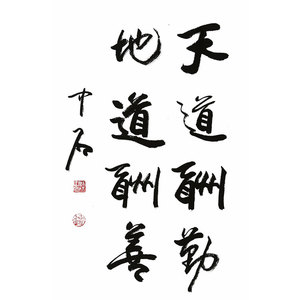 天道酬勤
地道酬善
中石